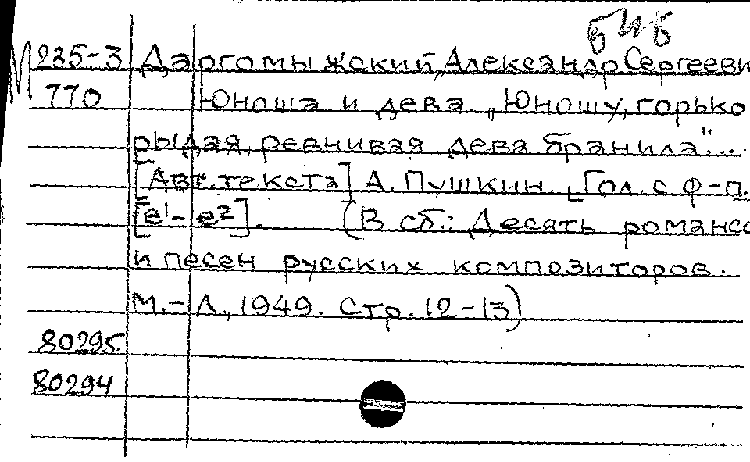 БИБ
М235-3 Даргомыжский, Александр Сергееви
770 Юноша и дева „Юношу, горько
рыдая, ревнивая дева бранила"...
[Авт. текста] А. Пушкин. [Гол. с ф-п.
[e¹-e²]. (В сб.: Десять романсо
и песен русских композиторов.
М.-Л., 1949. Стр. 12-13)
80295
80294